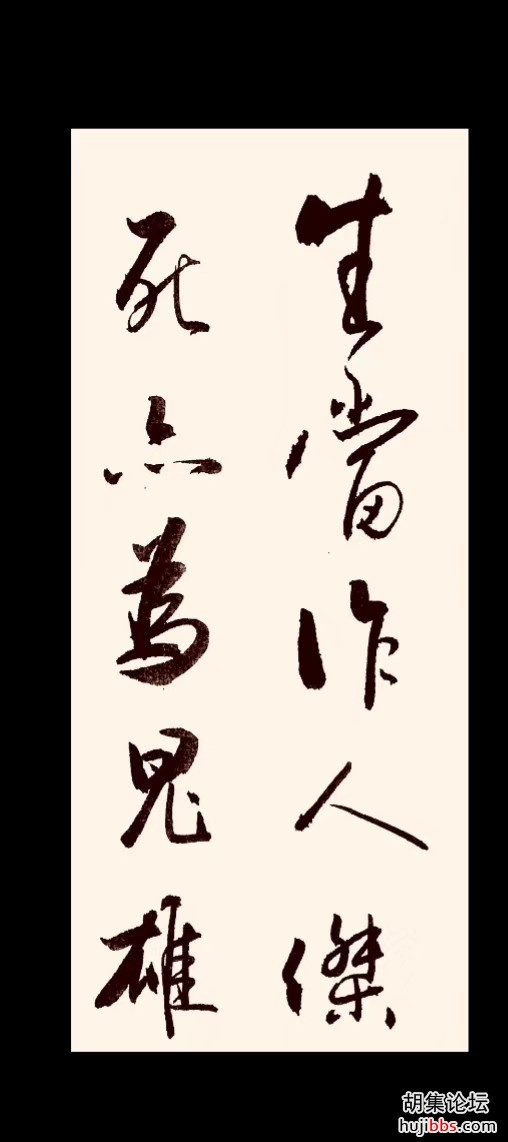 生當作人傑
死亦為鬼雄
胡集论坛
hujibbs.com